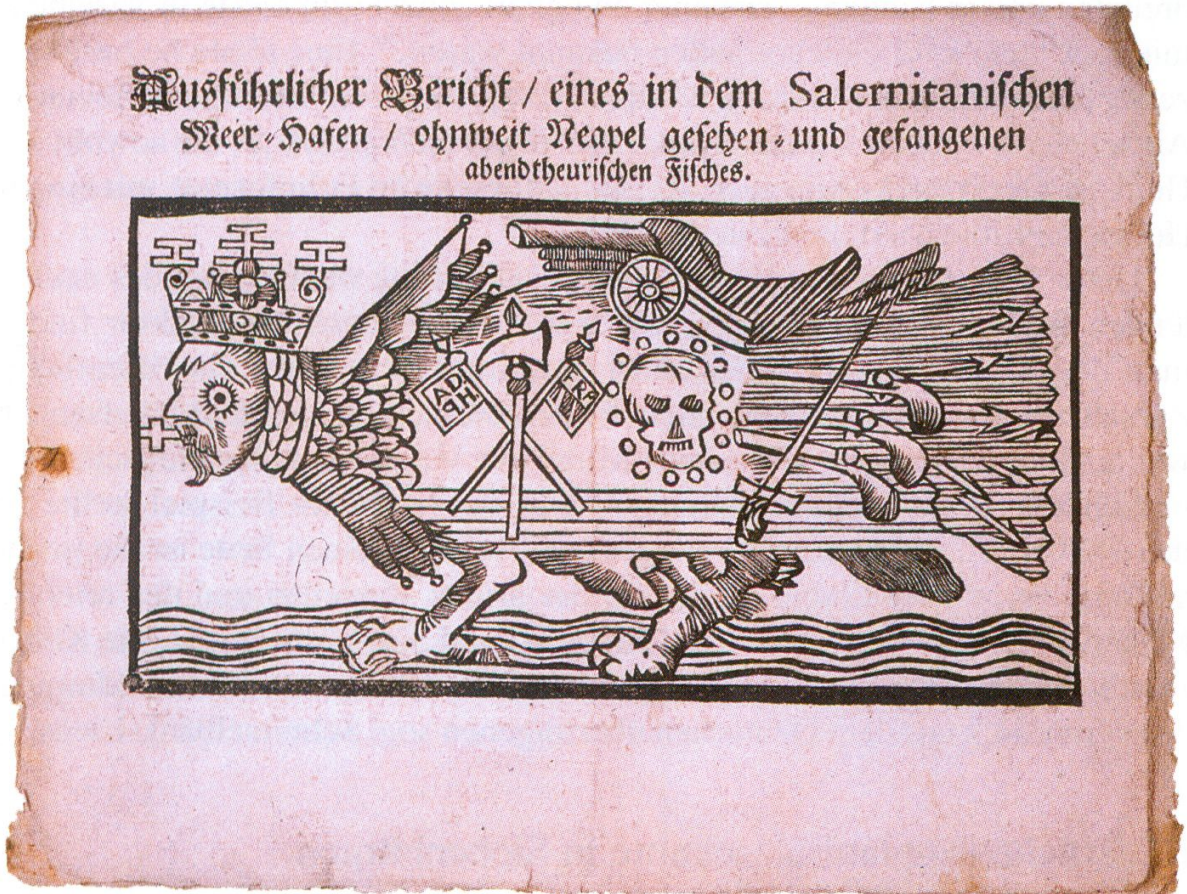 Ausführlicher Bericht / eines in dem Salernitanischen
Meer-Hafen / ohnweit Neapel gesehen- und gefangenen
abendtheurischen Fisches.
AD
PH
FRA